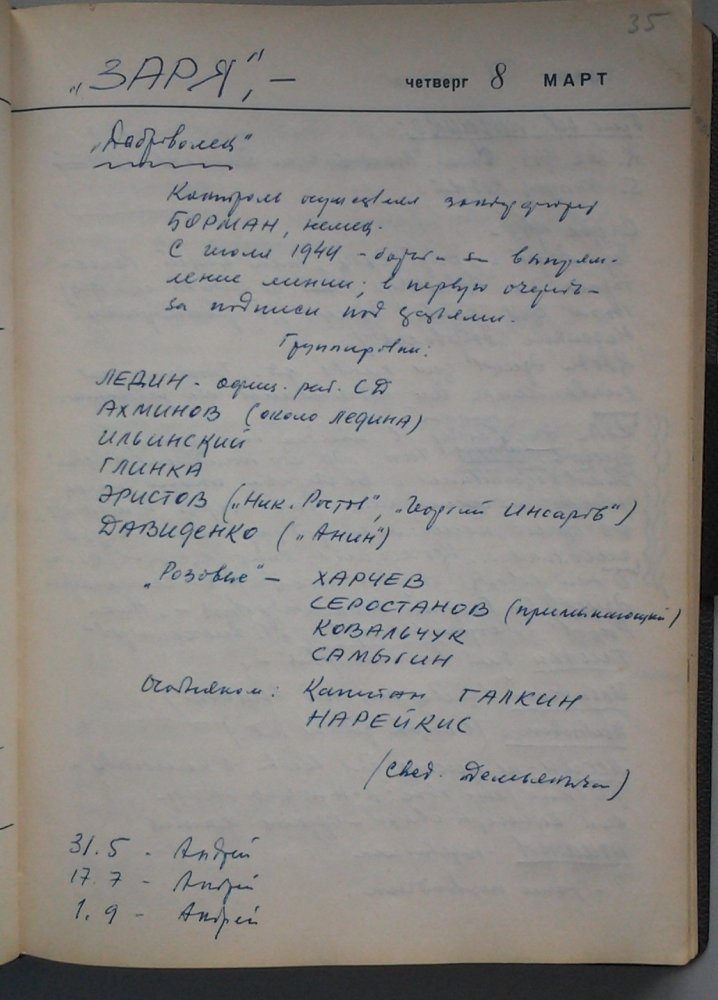 35
„ЗАРЯ“, –
четверг 8 МАРТ
„Доброволец“
Контроль осуществлял зондерфюрер
БОРМАН, немец.
С июля 1944 – борьба за выпрям-
ление линии; в первую очередь –
за подписи под статьями.
Группировки:
ЛЕДИН – офиц. раб. СД
АХМИНОВ (около Ледина)
ИЛЬИНСКИЙ
ГЛИНКА
ЭРИСТОВ („Ник. Ростов“, „Георгий Инсаров“)
ДАВИДЕНКО („Анин“)
„Розовые“ – ХАРЧЕВ
СЕРОСТАНОВ (примыкающий)
КОВАЛЬЧУК
САМЫГИН
Особняком: Капитан ГАЛКИН
НАРЕЙКИС
(свед. Демьяныча)
31.5 – Андрей
17.7 – Андрей
1.9 – Андрей